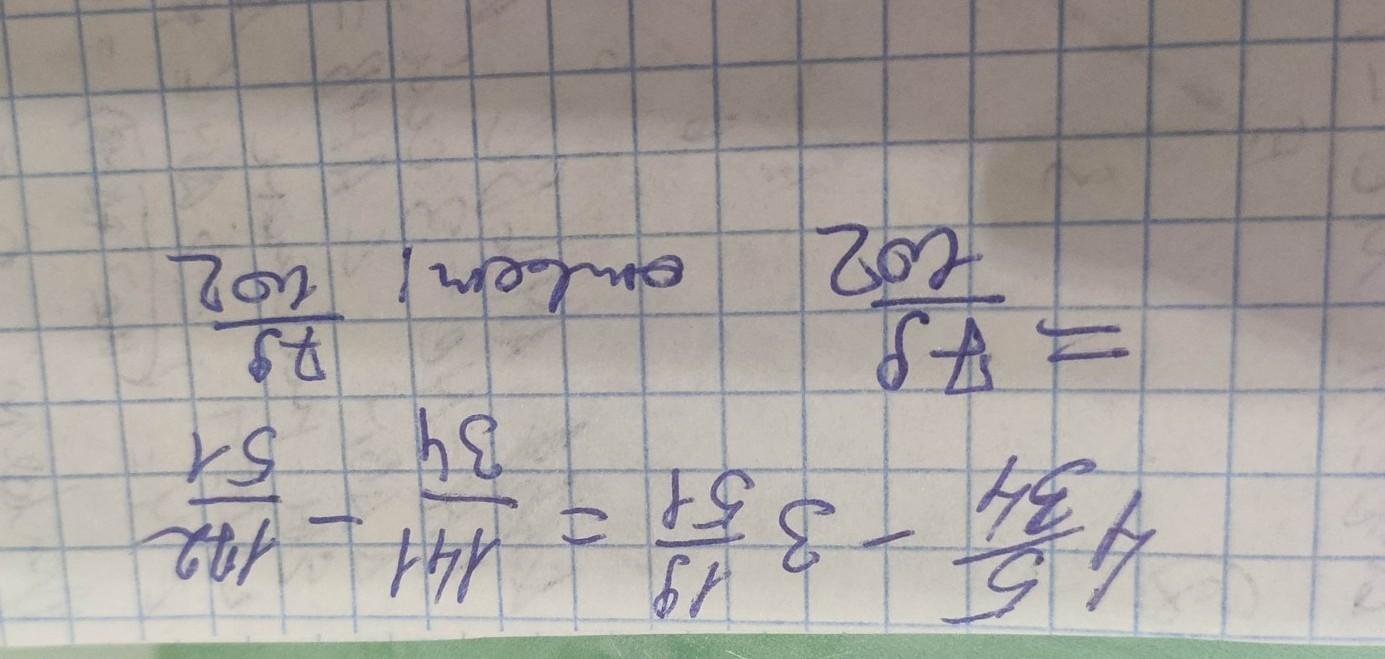 4 5/34 - 3 19/51 = 141/34 - 172/51
= 79/102 ответ: 79/102